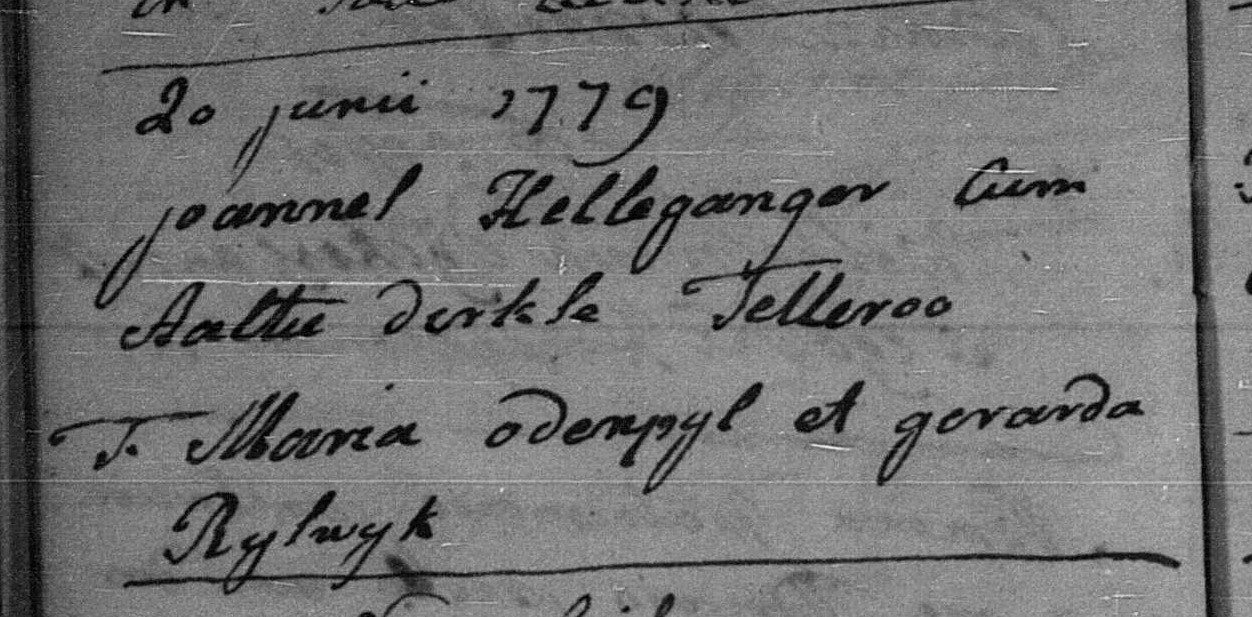 20 junii 1779
joannes Helleganger Cum
Aaltie derkse Telleroo
T. Maria odenpyl et gerarda
Ryswyk